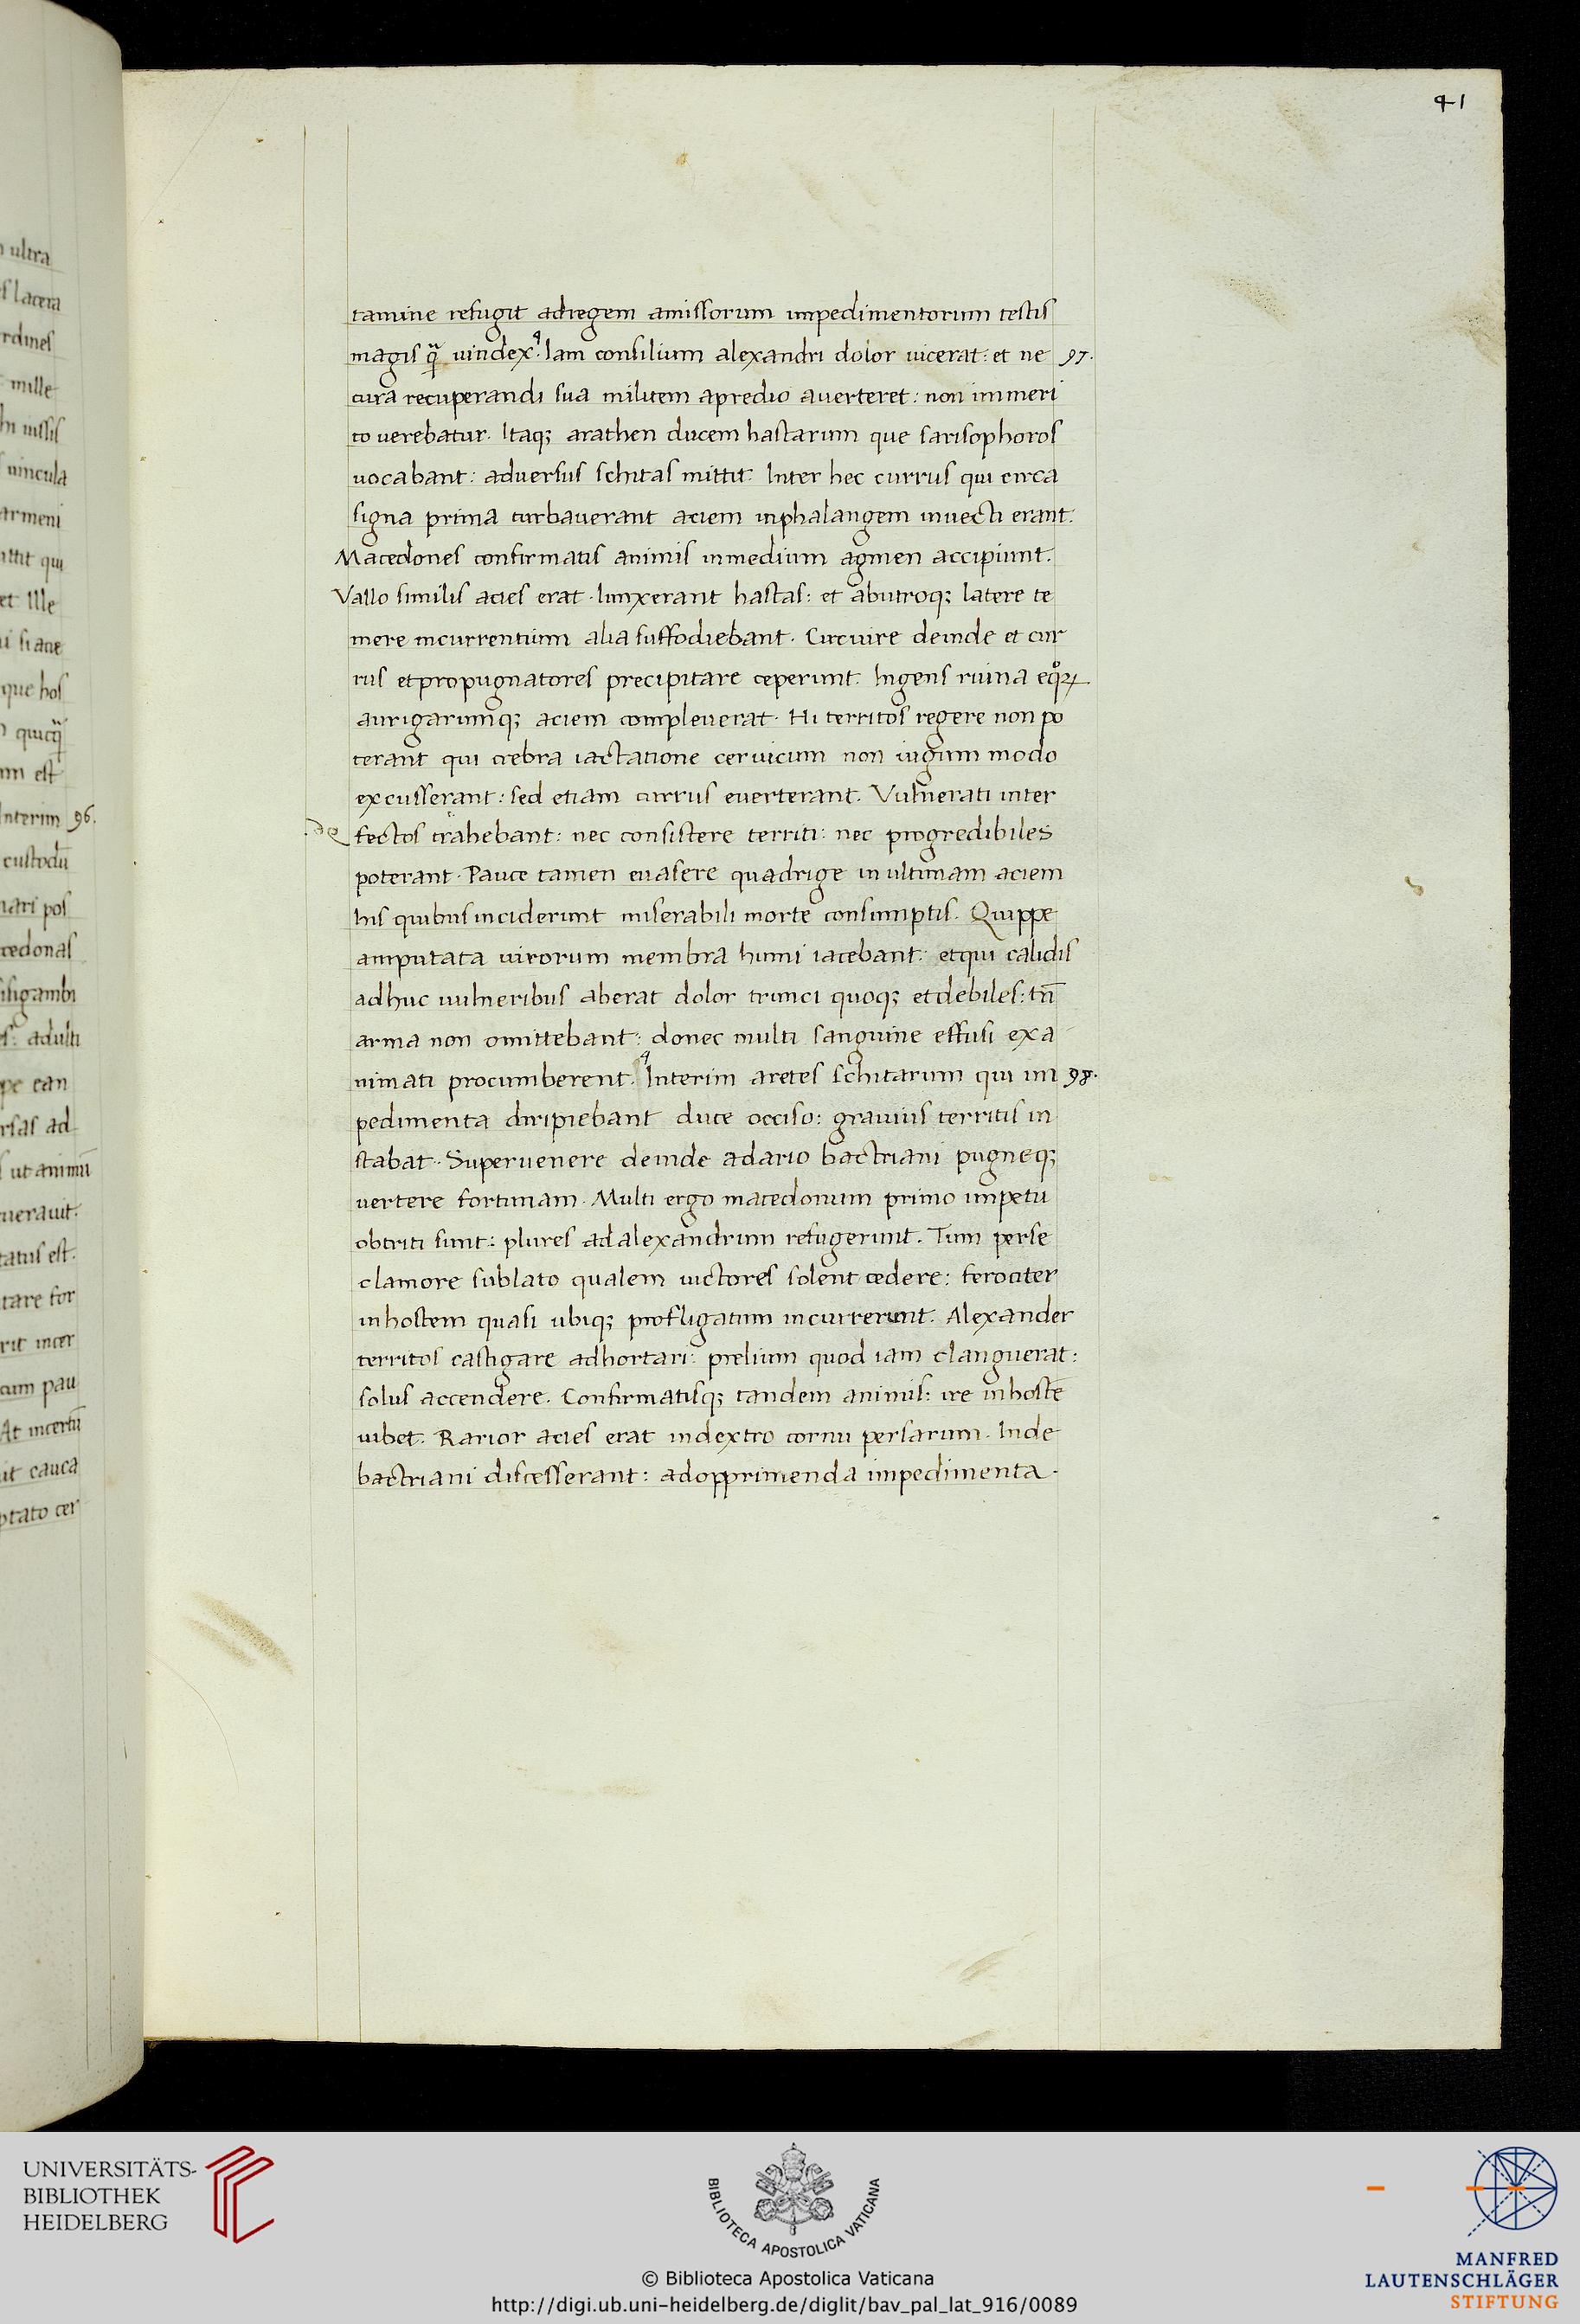 41
tamine refugit ad regem amissorum impedimentorum testis
magis qͣ̄ uindex. Iam consilium alexandri dolor uicerat: et ne 97.
cura recuperandi sua militem apredio auerteret: non immeri
to uerebatur. Itaq; arathen ducem hastarum que sarisophoros
uocabant: aduersus schitas mittit. Inter hec currus qui circa
signa prima turbauerant aciem inphalangem inuecti erant.
Macedones confirmatis animis inmedium agmen accipiunt.
Vallo similis acies erat. Iunxerant hastas: et abutroq; latere te
mere incurrentium alia suffodiebant. Circuire deinde et cur
rus et propugnatores precipitare ceperunt. Ingens ruina eqoꝝ
aurigarumq; aciem compleuerat. Hi territos regere non po
terant qui crebra iactatione ceruicum non iugum modo
excusserant: sed etiam currus euerterant. Vulnerati inter
fectos trahebant: nec consistere territi: nec progredibiles
poterant. Pauce tamen euasere quadrige in ultimam aciem
his quibus inciderunt miserabili morte consumptis. Quippe
amputata uirorum membra humi iacebant: etqui calidis
adhuc uulneribus aberat dolor trunci quoq; et debiles: tn̄
arma non omittebant: donec multi sanguine effusi exa
nimati procumberent. Interim aretes schitarum qui im 98.
pedimenta diripiebant duce occiso: grauius territis in
stabat. Superuenere deinde adario bactriani pugneq;
uertere fortunam. Multi ergo macedonum primo impetu
obtriti sunt: plures adalexandrum refugerunt. Tum perse
clamore sublato qualem uictores solent cedere: ferociter
inhostem quasi ubiq; profligatum incurrerunt. Alexander
territos castigare adhortari: prelium quod iam clanguerat:
solus accendere. Confirmatisq; tandem animis: ire inhostē
iubet. Rarior acies erat indextro cornu persarum. Inde
bactriani discesserant: adopprimenda impedimenta.
ultra
lacera
rdines
mille
iussis
uincula
armeni
ittit qui
et Ille
si acie
que hos
quicq̄
um est
Interim 96.
custodū
nari pos
cedonas
isigambi
adulti
ean
rsas ad
ut animū
uerauit.
tatus est.
tare for
rit incer
cum pau
At incertū
it cauca
ptato cer
UNIVERSITÄTS-
BIBLIOTHEK
HEIDELBERG
BIBLIOTECA APOSTOLICA VATICANA
© Biblioteca Apostolica Vaticana
http://digi.ub.uni-heidelberg.de/diglit/bav_pal_lat_916/0089
MANFRED
LAUTENSCHLÄGER
STIFTUNG